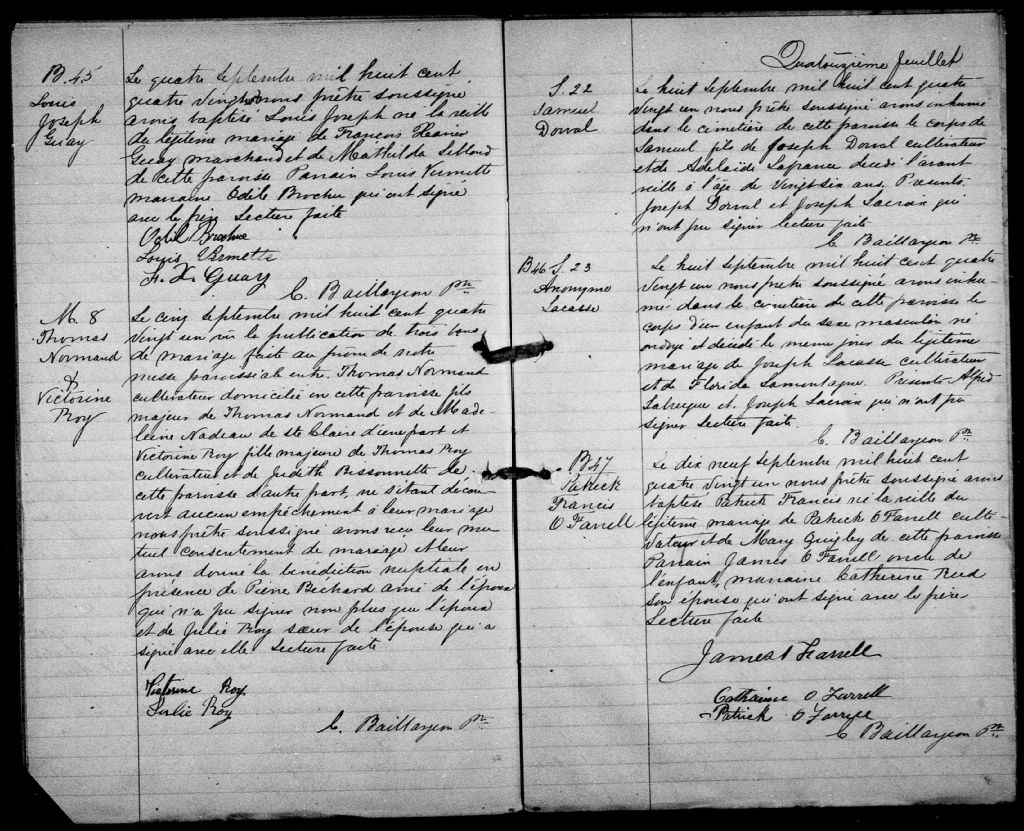 B. 45
Louis
Joseph
Guay
Le quatre Septembre mil huit cent
quatre vingt un nous prêtre soussigné
avons baptisé Louis Joseph né la veille
du légitime mariage de François Xavier
Guay marchand et de Mathilda Leblond
de cette paroisse Parrain Louis Vermette
marraine Odile Brochu qui ont signé
avec le père Lecture faite
Odil Brochue
Louis Vermette
F. X. Guay
C. Baillargeon Ptre
M. 8
Thomas
Normand
&
Victorine
Roy
Le cinq Septembre mil huit cent quatre
vingt un vu la publication de trois bans
de mariage faite au prône de notre
messe paroissiale entre Thomas Normand
cultivateur domicilié en cette paroisse fils
majeur de Thomas Normand et de Made-
leine Nadeau de Ste Claire d'une part et
Victorine Roy fille majeure de Thomas Roy
cultivateur et de Judith Bissonnette de
cette paroisse d'autre part, ne s'étant décou-
vert aucun empêchement à leur mariage
nous prêtre soussigné avons reçu leur mu-
tuel consentement de mariage et leur
avons donné la bénédiction nuptiale en
présence de Pierre Béchard ami de l'époux
qui n'a pu signer non plus que l'époux
et de Julie Roy sœur de l'épouse qui a
signé avec elle Lecture faite
Victorine Roy
Julie Roy
C. Baillargeon Ptre
Quatorzième feuillet
S. 22
Samuel
Dorval
Le huit Septembre mil huit cent quatre
vingt un nous prêtre soussigné avons inhumé
dans le cimetière de cette paroisse le corps de
Samuel fils de Joseph Dorval cultivateur
et de Adelaïde Lafrance décédé l'avant
veille à l'âge de vingt six ans. Présents
Joseph Dorval et Joseph Lacroix qui
n'ont pu signer lecture faite
C. Baillargeon Ptre
B46 S. 23
Anonyme
Lacasse
Le huit Septembre mil huit cent quatre
vingt un nous prêtre soussigné avons inhu-
mé dans le cimetière de cette paroisse le
corps d'un enfant du sexe masculin né
ondoyé et décédé le même jour du légitime
mariage de Joseph Lacasse cultivateur
et de Florida Lamontagne. Présents Alfred
Labrecque et Joseph Lacroix qui n'ont pu
signer Lecture faite.
C. Baillargeon Ptre
B47
Patrick
Francis
O Farrell
Le dix neuf Septembre mil huit cent
quatre vingt un nous prêtre soussigné avons
baptisé Patrick Francis né la veille du
légitime mariage de Patrick O Farrell culti-
vateur et de Mary Quigley de cette paroisse
Parrain James O Farrell oncle de
l'enfant, marraine Catherine Reed
son épouse qui ont signé avec le père
Lecture faite
James O Farrell
Catharine O Farrell
Patrick O Farrell
C Baillargeon Ptre